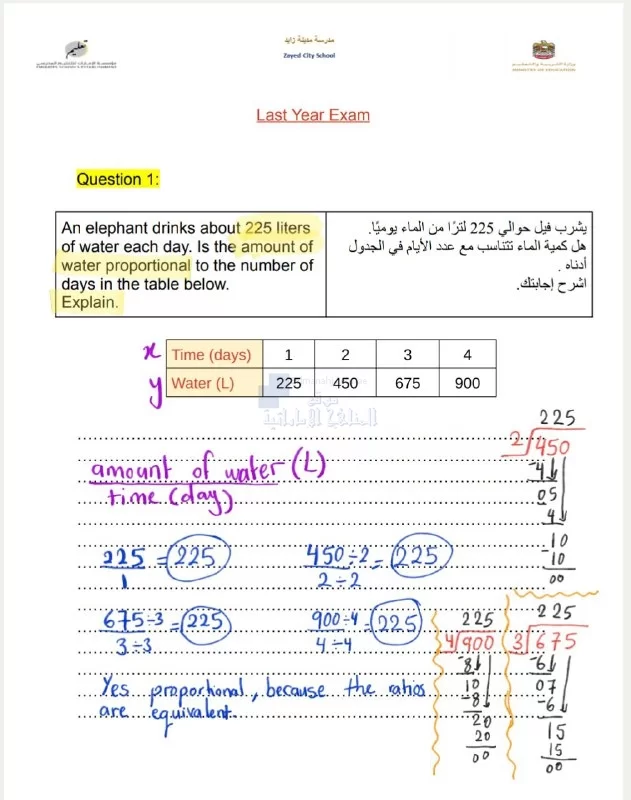 تعليم
مؤسسة الإمارات للتعليم المدرسي
EMIRATES SCHOOLS ESTABLISHMENT
مدرسة مدينة زايد
Zayed City School
وزارة التربية والتعليم
MINISTRY OF EDUCATION
Last Year Exam
Question 1:
An elephant drinks about 225 liters
of water each day. Is the amount of
water proportional to the number of
days in the table below.
Explain.
يشرب فيل حوالي 225 لترًا من الماء يوميًا.
هل كمية الماء تتناسب مع عدد الأيام في الجدول
أدناه .
اشرح إجابتك.
x Time (days) 1 2 3 4
y Water (L) 225 450 675 900
موقع
المناهج الإماراتية
amount of water (L)
time (day)
225
2 450
-4
05
4
-10
10
00
225 = 225
1
450 ÷2 = 225
2 ÷ 2
675 ÷3 = 225
3 ÷3
900 ÷4 = 225
4 ÷4
Yes proportional, because the ratios
are equivalent.
225
4 900
-8
10
-8
20
20
00
225
3 675
-6
07
-6
15
15
00